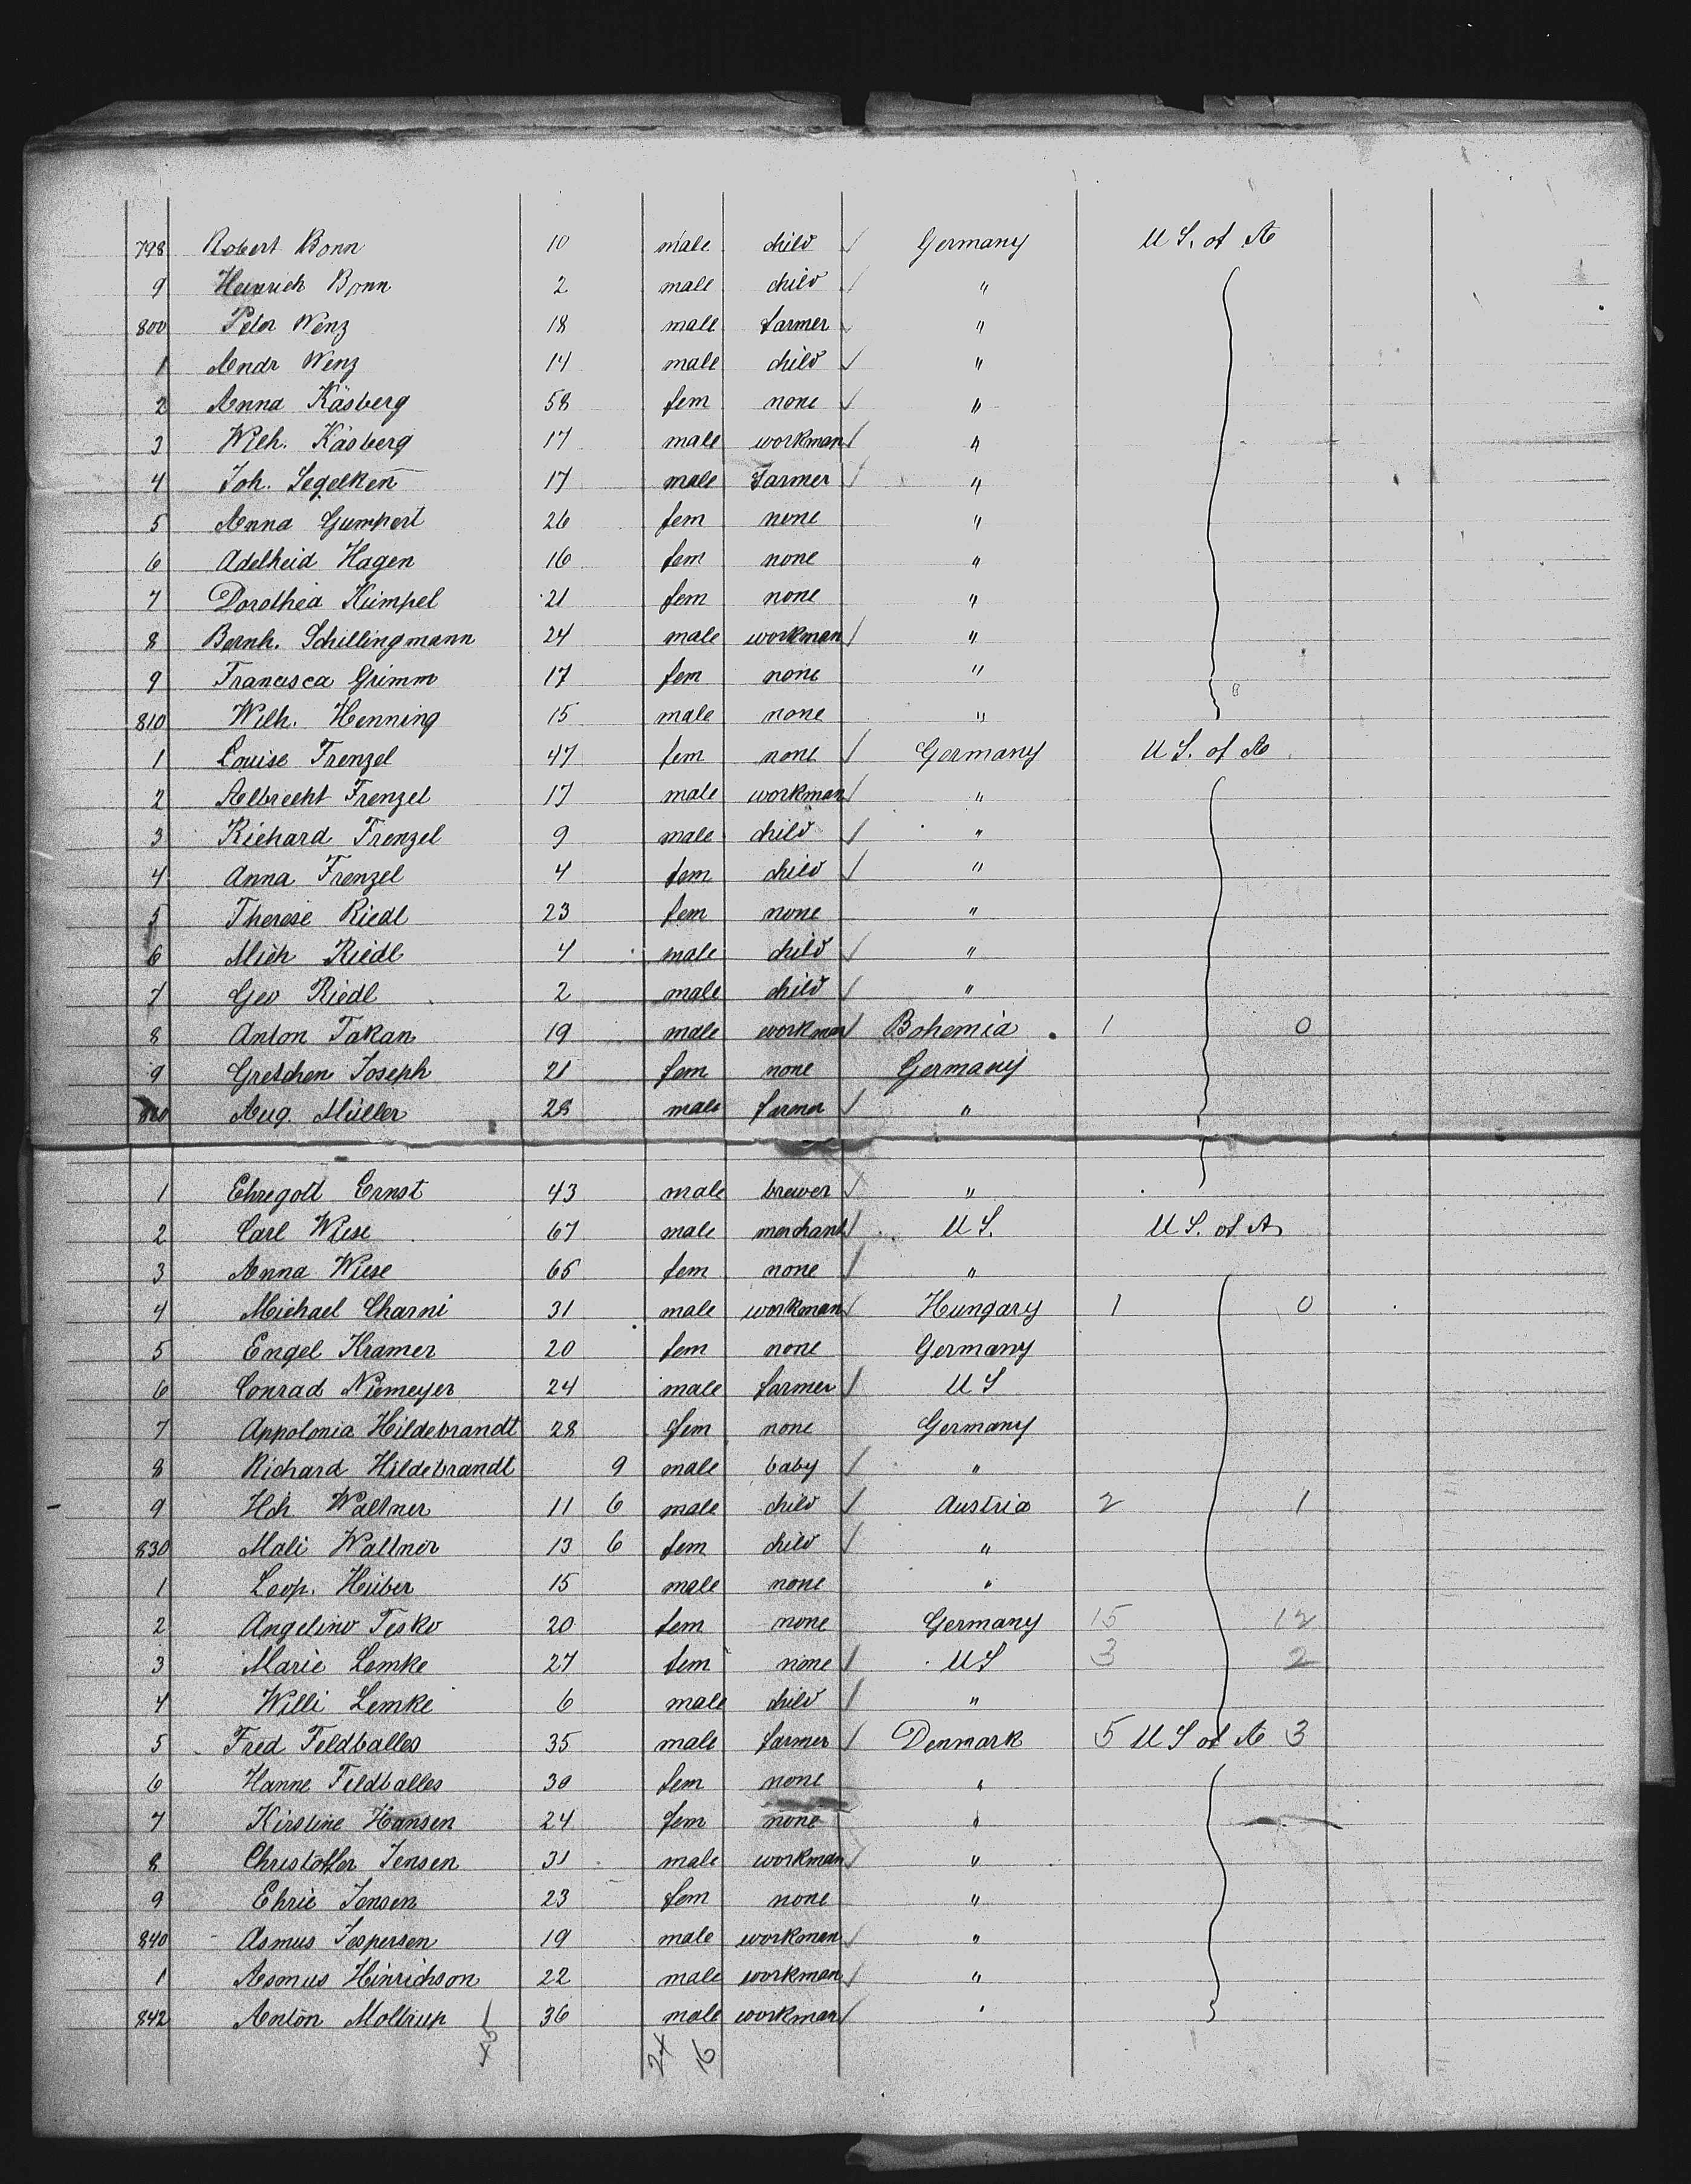 798 Robert Bonn 10 male child / Germany U S. of A
9 Heinrich Bonn 2 male child / "
800 Peter Wenz 18 male farmer "
1 Andr Wenz 14 male child / "
2 Anna Käsberg 58 fem none / "
3 Wilh. Käsberg 17 male workman / "
4 Joh. Segelken 17 male farmer / "
5 Anna Gumpert 26 fem none "
6 Adelheid Hagen 16 fem none "
7 Dorothea Kümpel 21 fem none "
8 Bernh. Schillingmann 24 male workman / "
9 Francisca Grimm 17 fem none "
810 Wilh. Henning 15 male none "
1 Louise Frenzel 47 fem none / Germany U S. of A
2 Albrecht Frenzel 17 male workman / "
3 Richard Frenzel 9 male child / "
4 Anna Frenzel 4 fem child / "
5 Therese Riedl 23 fem none "
6 Mich Riedl 4 male child / "
7 Geo Riedl 2 male child / "
8 Anton Takan 19 male workman / Bohemia 1 0
9 Gretchen Joseph 21 fem none Germany
820 Aug. Müller 28 male farmer / "
1 Ehregott Ernst 43 male brewer / "
2 Carl Wiese 67 male merchant / U S. U S. of A
3 Anna Wiese 65 fem none / "
4 Michael Charni 31 male workman / Hungary 1 0
5 Engel Kramer 20 fem none Germany
6 Conrad Niemeyer 24 male farmer / U S
7 Appolonia Hildebrandt 28 fem none Germany
8 Richard Hildebrandt 9 male baby / "
9 Hch Waltner 11 6 male child / Austria 2 1
830 Mali Waltner 13 6 fem child / "
1 Leop. Huber 15 male none "
2 Angelino Tesko 20 fem none Germany 15 12
3 Marie Lemke 27 fem none / U S 3 2
4 Willi Lemke 6 male child / "
5 Fred Feldballes 35 male farmer / Denmark 5 U S of A 3
6 Hanne Feldballes 30 fem none "
7 Kirstine Hansen 24 fem none "
8 Christoffer Jensen 31 male workman / "
9 Ehrie Jensen 23 fem none "
840 Asmus Jespersen 19 male workman / "
1 Asmus Hinrichson 22 male workman / "
842 Anton Moltrup 36 male workman / "
45 24 16